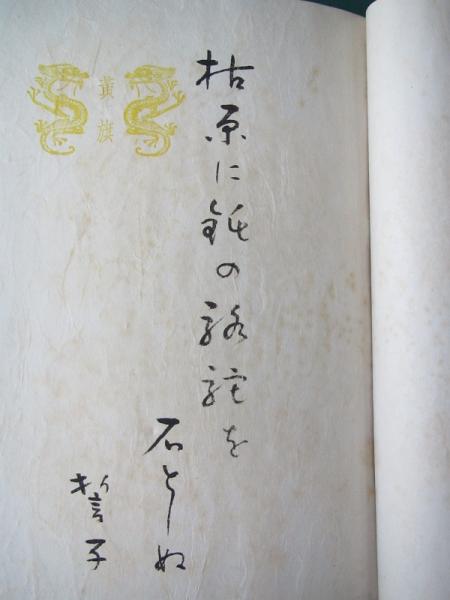 枯原に鈍の駱駝を
石としぬ
誓子
黃旗